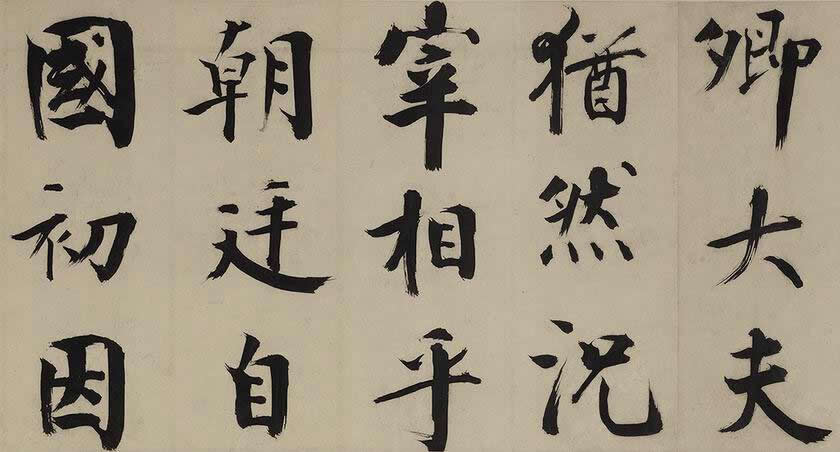 卿大夫
猶然況
宰相乎
朝廷自
國初因